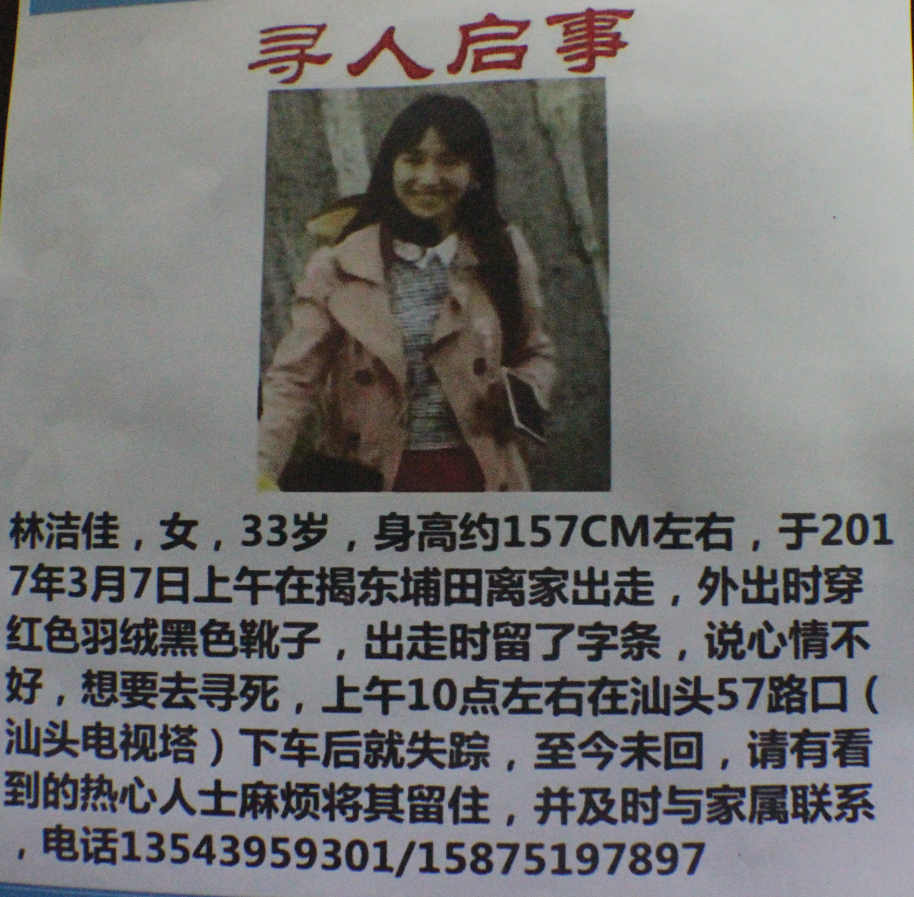 寻人启事
林洁佳，女，33岁，身高约157CM左右，于201
7年3月7日上午在揭东埔田离家出走，外出时穿
红色羽绒黑色靴子，出走时留了字条，说心情不
好，想要去寻死，上午10点左右在汕头57路口（
汕头电视塔）下车后就失踪，至今未回，请有看
到的热心人士麻烦将其留住，并及时与家属联系
，电话13543959301/15875197897